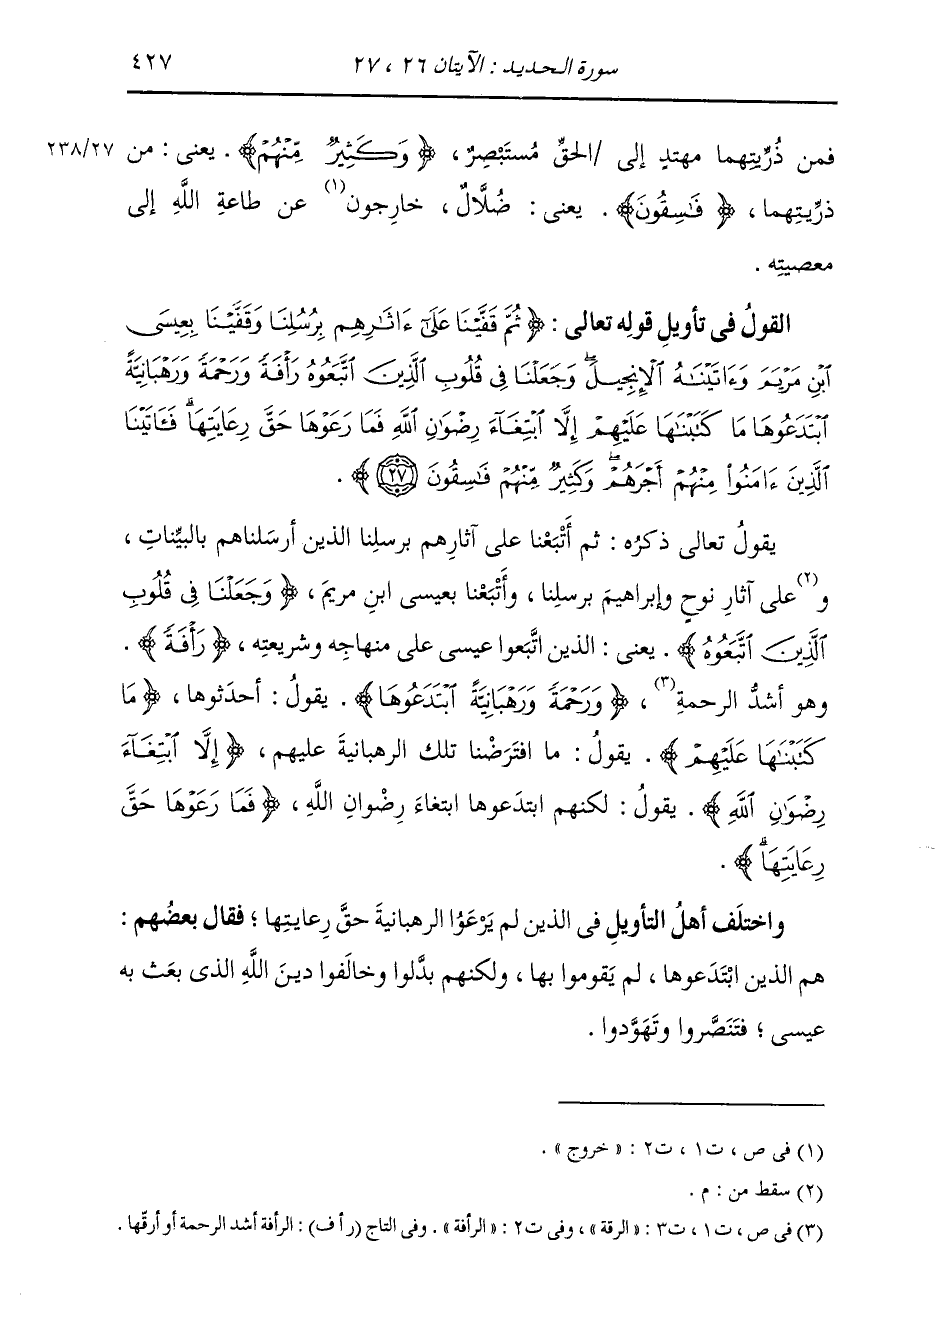 سورة الحديد : الآيتان ٢٦ ، ٢٧ ٤٢٧
فمن ذُرِّيتِهما مهتدٍ إلى /الحقِّ مُستَبْصِرٌ ، ﴿ وَكَثِيرٌ مِّنْهُمْ﴾ . يعنى : من ٢٣٨/٢٧
ذرِّيتِهما ، ﴿ فَاسِقُونَ﴾ . يعنى : ضُلَّالٌ ، خارِجون(١) عن طاعةِ اللَّهِ إلى
معصيتِه .
القولُ فى تأويلِ قولِه تعالى : ﴿ ثُمَّ قَفَّيْنَا عَلَىٰٓ ءَاثَٰرِهِم بِرُسُلِنَا وَقَفَّيْنَا بِعِيسَى
ٱبْنِ مَرْيَمَ وَءَاتَيْنَٰهُ ٱلْإِنجِيلَۖ وَجَعَلْنَا فِى قُلُوبِ ٱلَّذِينَ ٱتَّبَعُوهُ رَأْفَةً وَرَحْمَةً وَرَهْبَانِيَّةً
ٱبْتَدَعُوهَا مَا كَتَبْنَٰهَا عَلَيْهِمْ إِلَّا ٱبْتِغَآءَ رِضْوَٰنِ ٱللَّهِ فَمَا رَعَوْهَا حَقَّ رِعَايَتِهَاۖ فَـَٔاتَيْنَا
ٱلَّذِينَ ءَامَنُوا۟ مِنْهُمْ أَجْرَهُمْۖ وَكَثِيرٌ مِّنْهُمْ فَٰسِقُونَ ٢٧ ﴾ .
يقولُ تعالى ذكرُه : ثم أَتْبَعْنا على آثارِهم برسلِنا الذين أرسَلناهم بالبيِّناتِ ،
و(٢)على آثارِ نوحٍ وإبراهيمَ برسلِنا ، وأَتْبَعْنا بعيسى ابنِ مريمَ ، ﴿ وَجَعَلْنَا فِى قُلُوبِ
ٱلَّذِينَ ٱتَّبَعُوهُ ﴾ . يعنى : الذين اتَّبَعوا عيسى على منهاجِه وشريعتِه ، ﴿ رَأْفَةً ﴾ .
وهو أشدُّ الرحمةِ(٣) ، ﴿ وَرَحْمَةً وَرَهْبَانِيَّةً ٱبْتَدَعُوهَا﴾ . يقولُ : أحدَثوها ، ﴿ مَا
كَتَبْنَٰهَا عَلَيْهِمْ ﴾ . يقولُ : ما افتَرَضْنا تلك الرهبانيةَ عليهم ، ﴿ إِلَّا ٱبْتِغَآءَ
رِضْوَٰنِ ٱللَّهِ ﴾ . يقولُ : لكنهم ابتدَعوها ابتغاءَ رِضْوانِ اللَّهِ ، ﴿ فَمَا رَعَوْهَا حَقَّ
رِعَايَتِهَاۖ ﴾ .
واختلَف أهلُ التأويلِ فى الذين لم يَرْعَوُا الرهبانيةَ حقَّ رِعايتِها ؛ فقال بعضُهم :
هم الذين ابْتَدَعوها ، لم يَقوموا بها ، ولكنهم بدَّلوا وخالَفوا دينَ اللَّهِ الذى بعَث به
عيسى ؛ فتَنَصَّروا وتَهَوَّدوا .
(١) فى ص ، ت١ ، ت٢ : « خروج » .
(٢) سقط من : م .
(٣) فى ص ، ت١ ، ت٣ : « الرقة » ، وفى ت٢ : « الرأفة » . وفى التاج (ر أ ف) : الرأفة أشد الرحمة أو أرقّها .